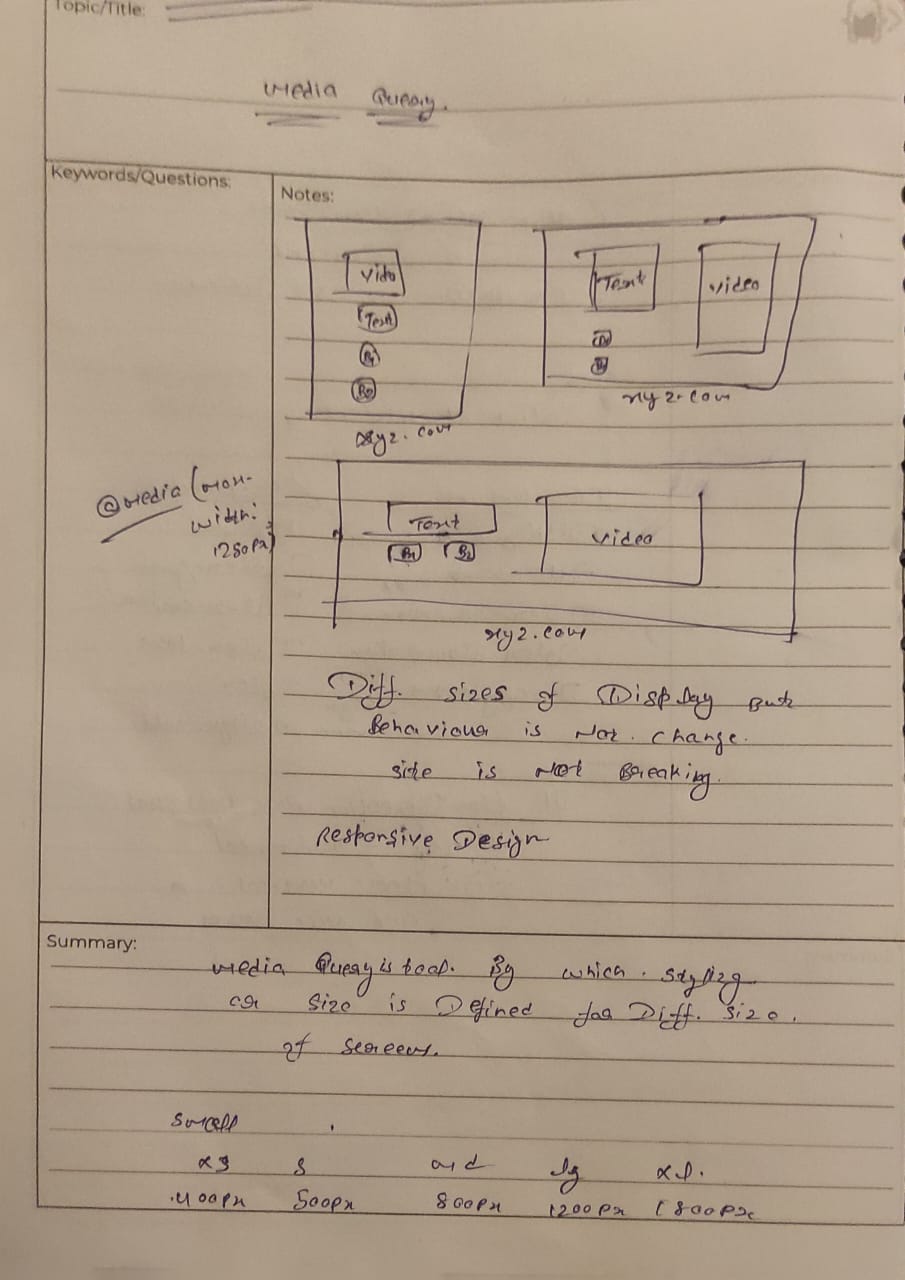 Topic/Title:
Media Query.
Keywords/Questions:
Notes:
Vido
Text
B1
B2
xyz.com
Text
video
B1
B2
xyz.com
@media (max-
width:
1280px)
Text
B1 B2
video
xyz.com
Diff. sizes of Display But
Behaviour is Not. change.
site is Not Breaking.
Responsive Design
Summary:
Media Query is tool. By which. styling
or size is Defined for Diff. size.
of screens.
small
xs s md lg xl.
400px 500px 800px 1200px 1800px